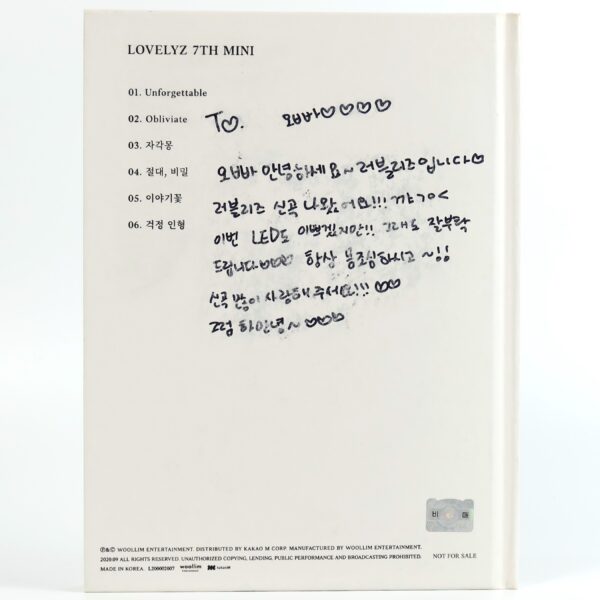 LOVELYZ 7TH MINI
01. Unforgettable
02. Obliviate
03. 자각몽
04. 절대, 비밀
05. 이야기꽃
06. 걱정 인형
To. 오빠♡♡♡♡
오빠 안녕하세요~ 러블리즈입니다♡
러블리즈 신곡 나왔어요!!! 꺄ㄱㅇ<
이번 LED도 이쁘겠지만!! 그래도 잘부탁
드립니다♡♡♡ 항상 몸조심하시고~!!
신곡 많이 사랑해 주세요!!! ♡♡
그럼 하안녕~ ♡♡♡
비 매
Ⓟ&© WOOLLIM ENTERTAINMENT. DISTRIBUTED BY KAKAO M CORP. MANUFACTURED BY WOOLLIM ENTERTAINMENT.
2020.09 ALL RIGHTS RESERVED. UNAUTHORIZED COPYING, LENDING, PUBLIC PERFORMANCE AND BROADCASTING PROHIBITED.
NOT FOR SALE
MADE IN KOREA. L200002007 woollim kakaoM